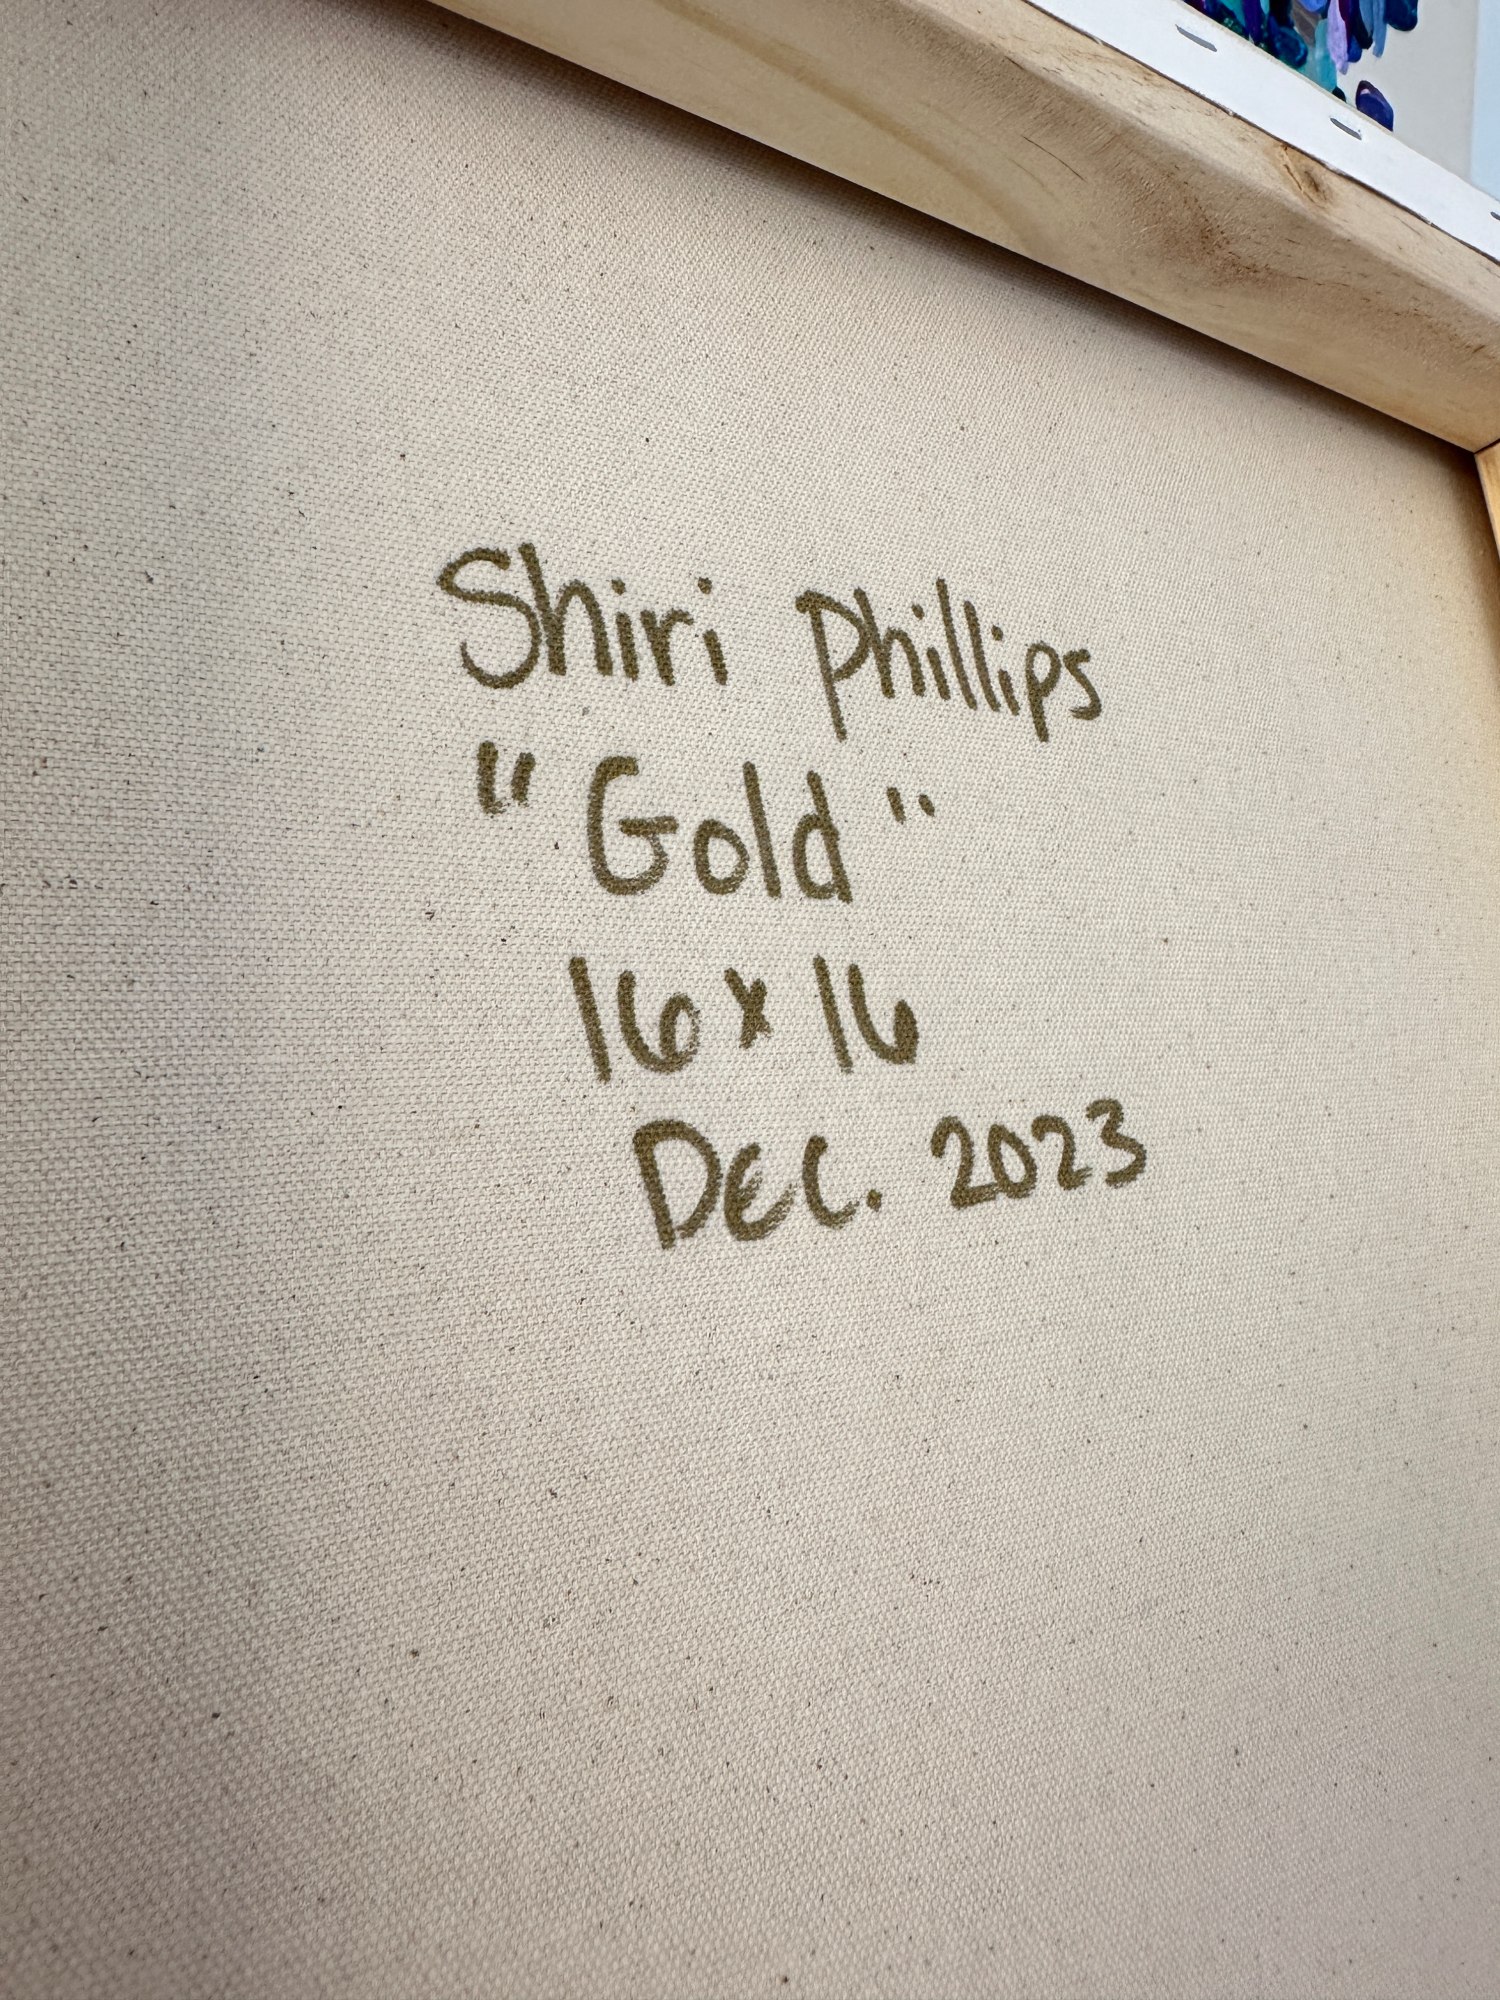 Shiri Phillips
"Gold"
16x16
DEC. 2023